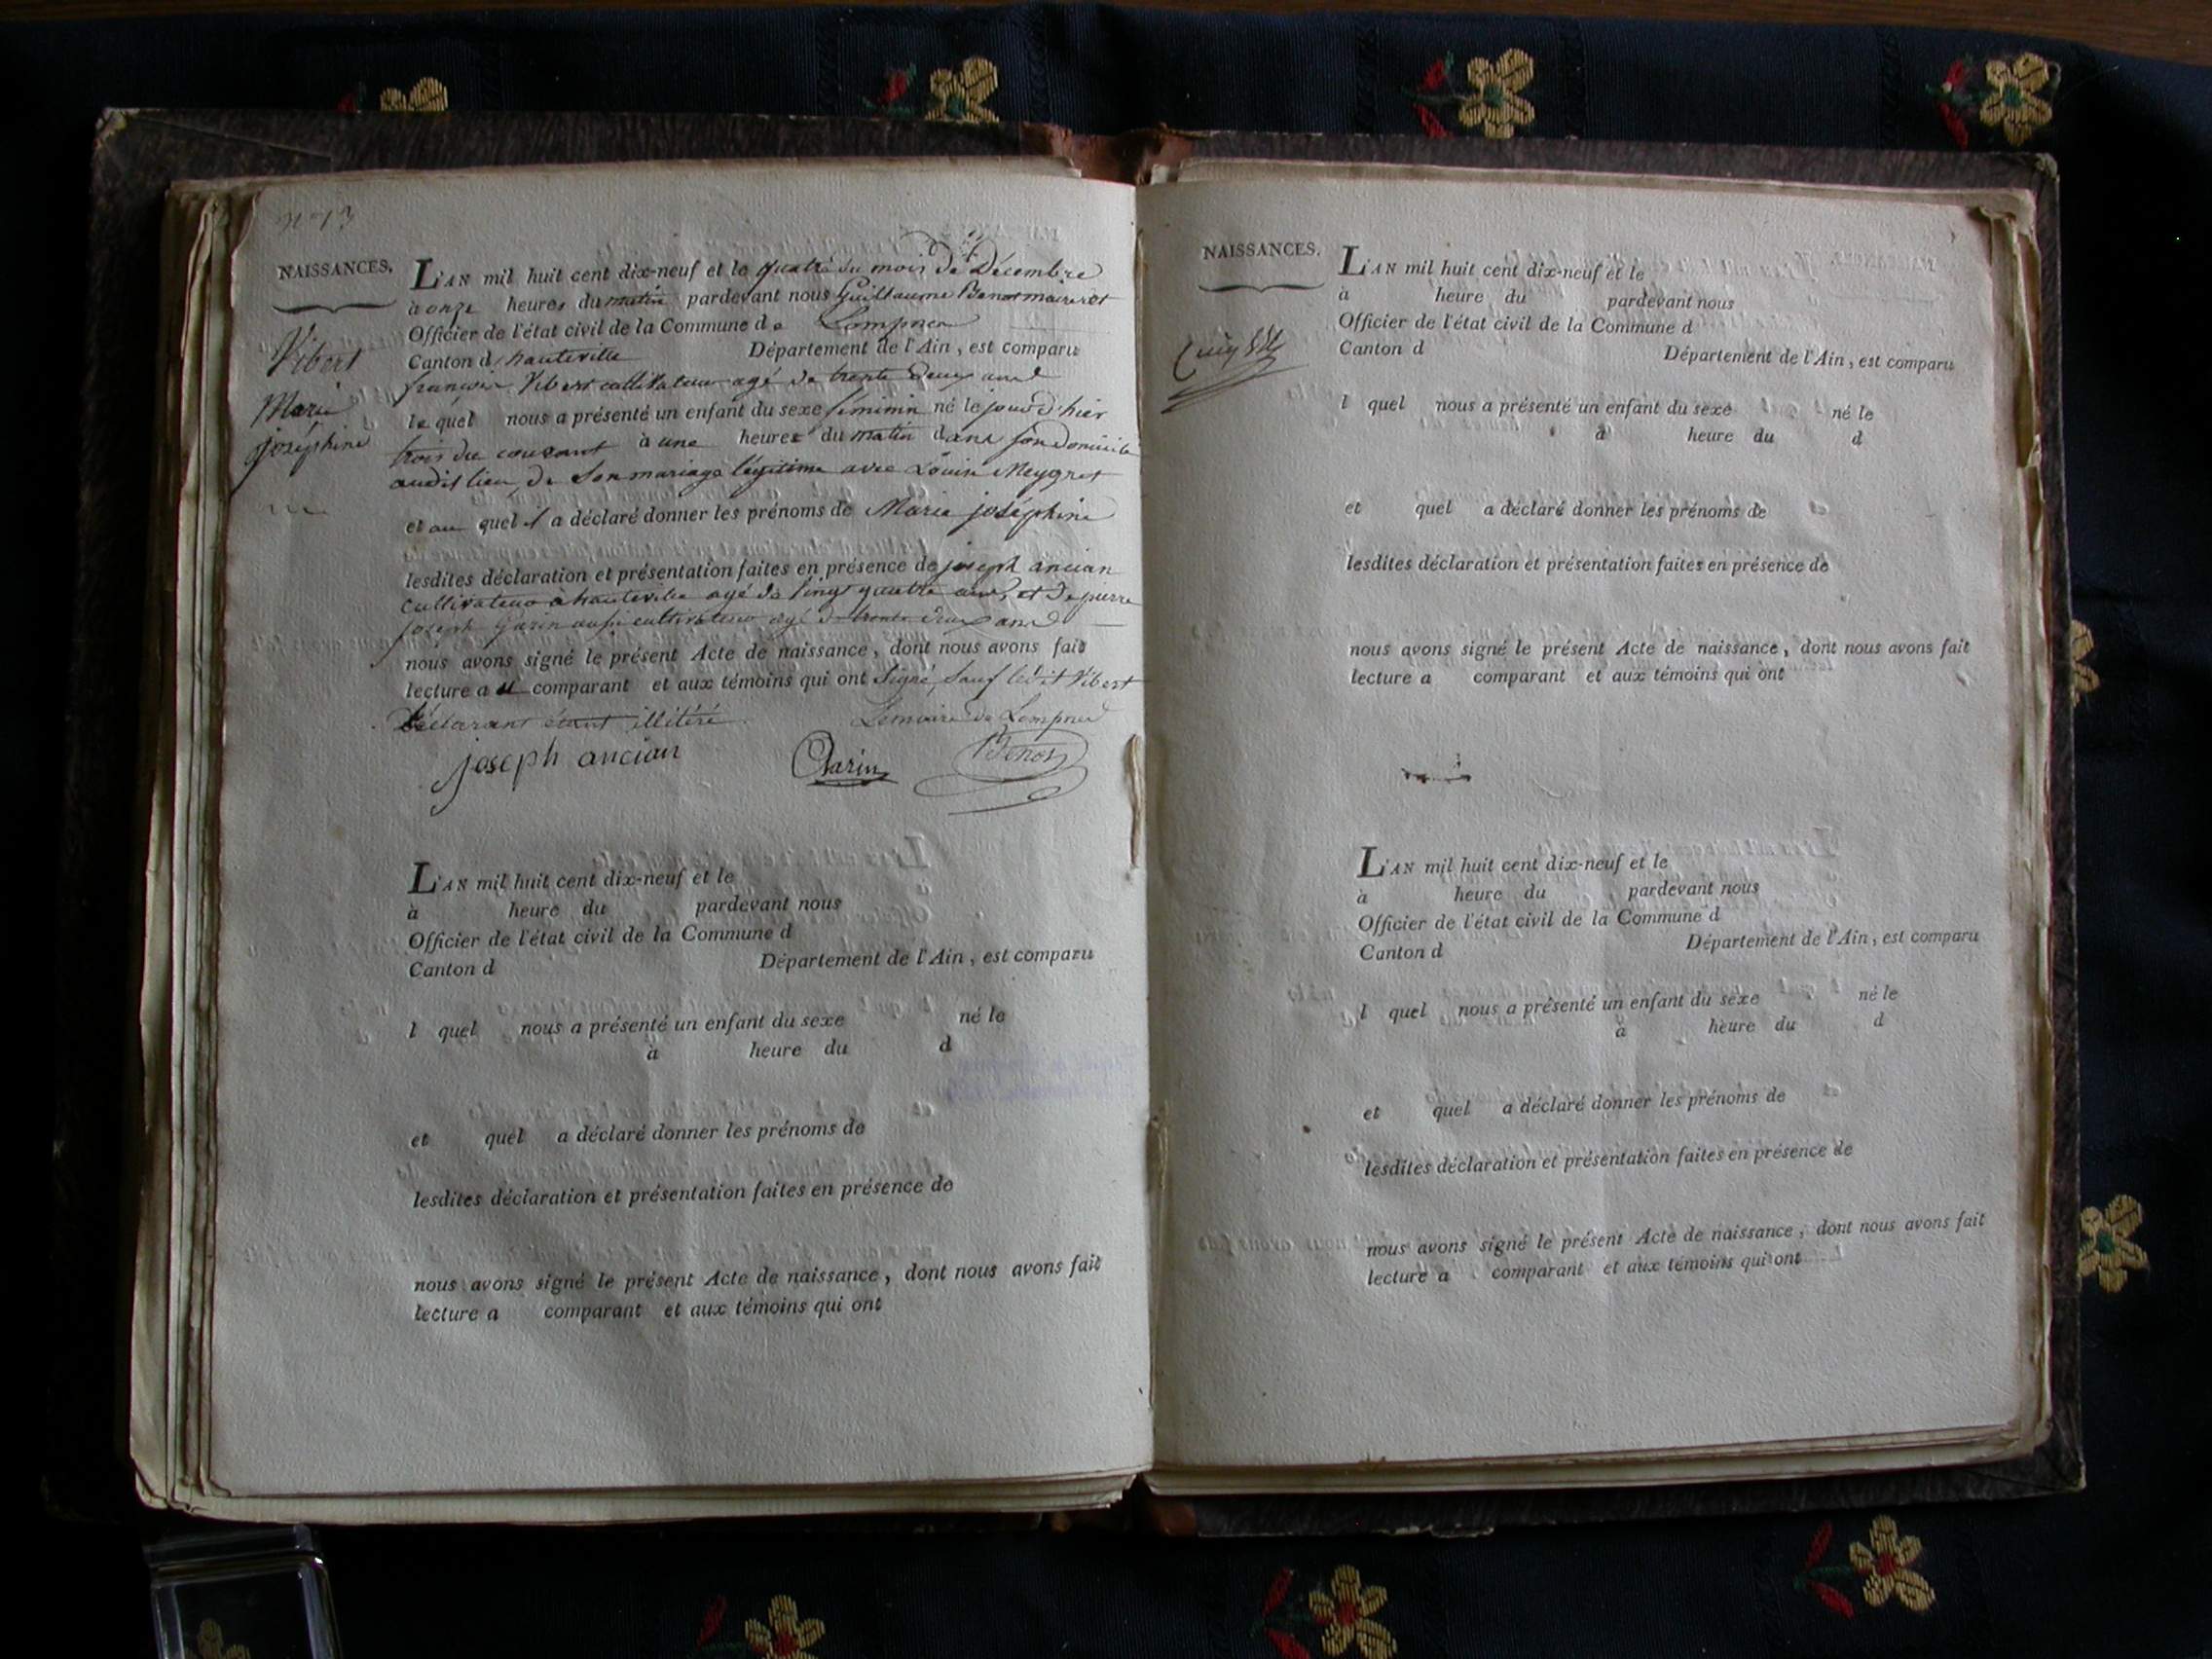 N° 13
NAISSANCES.
Vibert
Marie
joséphine
L'AN mil huit cent dix-neuf et le quatre du mois de Décembre
à onze heures du matin pardevant nous Guillaume Benot maire et
Officier de l'état civil de la Commune de Lompnes
Canton d hauteville Département de l'Ain, est comparu
françois Vibert cultivateur agé de trente deux ans
le quel nous a présenté un enfant du sexe féminin né le jour d'hier
trois du courant à une heures du matin dans son domicile
audit lieu, de Son mariage légitime avec Louise Meygret
et au quel il a déclaré donner les prénoms de Marie joséphine
lesdites déclaration et présentation faites en présence de joseph ancian
cultivateur à hauteville agé de vingt quatre ans, et de pierre
joseph garin aussi cultivateur agé de trente deux ans
nous avons signé le présent Acte de naissance, dont nous avons fait
lecture a u comparant et aux témoins qui ont Signé, Sauf ledit Vibert
Déclarant étant illitéré Le maire de Lompnes
joseph ancian Garin Benot
L'AN mil huit cent dix-neuf et le
à heure du pardevant nous
Officier de l'état civil de la Commune d
Canton d Département de l'Ain, est comparu
l quel nous a présenté un enfant du sexe né le
à heure du d
et quel a déclaré donner les prénoms de
lesdites déclaration et présentation faites en présence de
nous avons signé le présent Acte de naissance, dont nous avons fait
lecture a comparant et aux témoins qui ont
NAISSANCES.
L'AN mil huit cent dix-neuf et le
à heure du pardevant nous
Officier de l'état civil de la Commune d
Canton d Département de l'Ain, est comparu
l quel nous a présenté un enfant du sexe né le
à heure du d
et quel a déclaré donner les prénoms de
lesdites déclaration et présentation faites en présence de
nous avons signé le présent Acte de naissance, dont nous avons fait
lecture a comparant et aux témoins qui ont
L'AN mil huit cent dix-neuf et le
à heure du pardevant nous
Officier de l'état civil de la Commune d
Canton d Département de l'Ain, est comparu
l quel nous a présenté un enfant du sexe né le
à heure du d
et quel a déclaré donner les prénoms de
lesdites déclaration et présentation faites en présence de
nous avons signé le présent Acte de naissance, dont nous avons fait
lecture a comparant et aux témoins qui ont